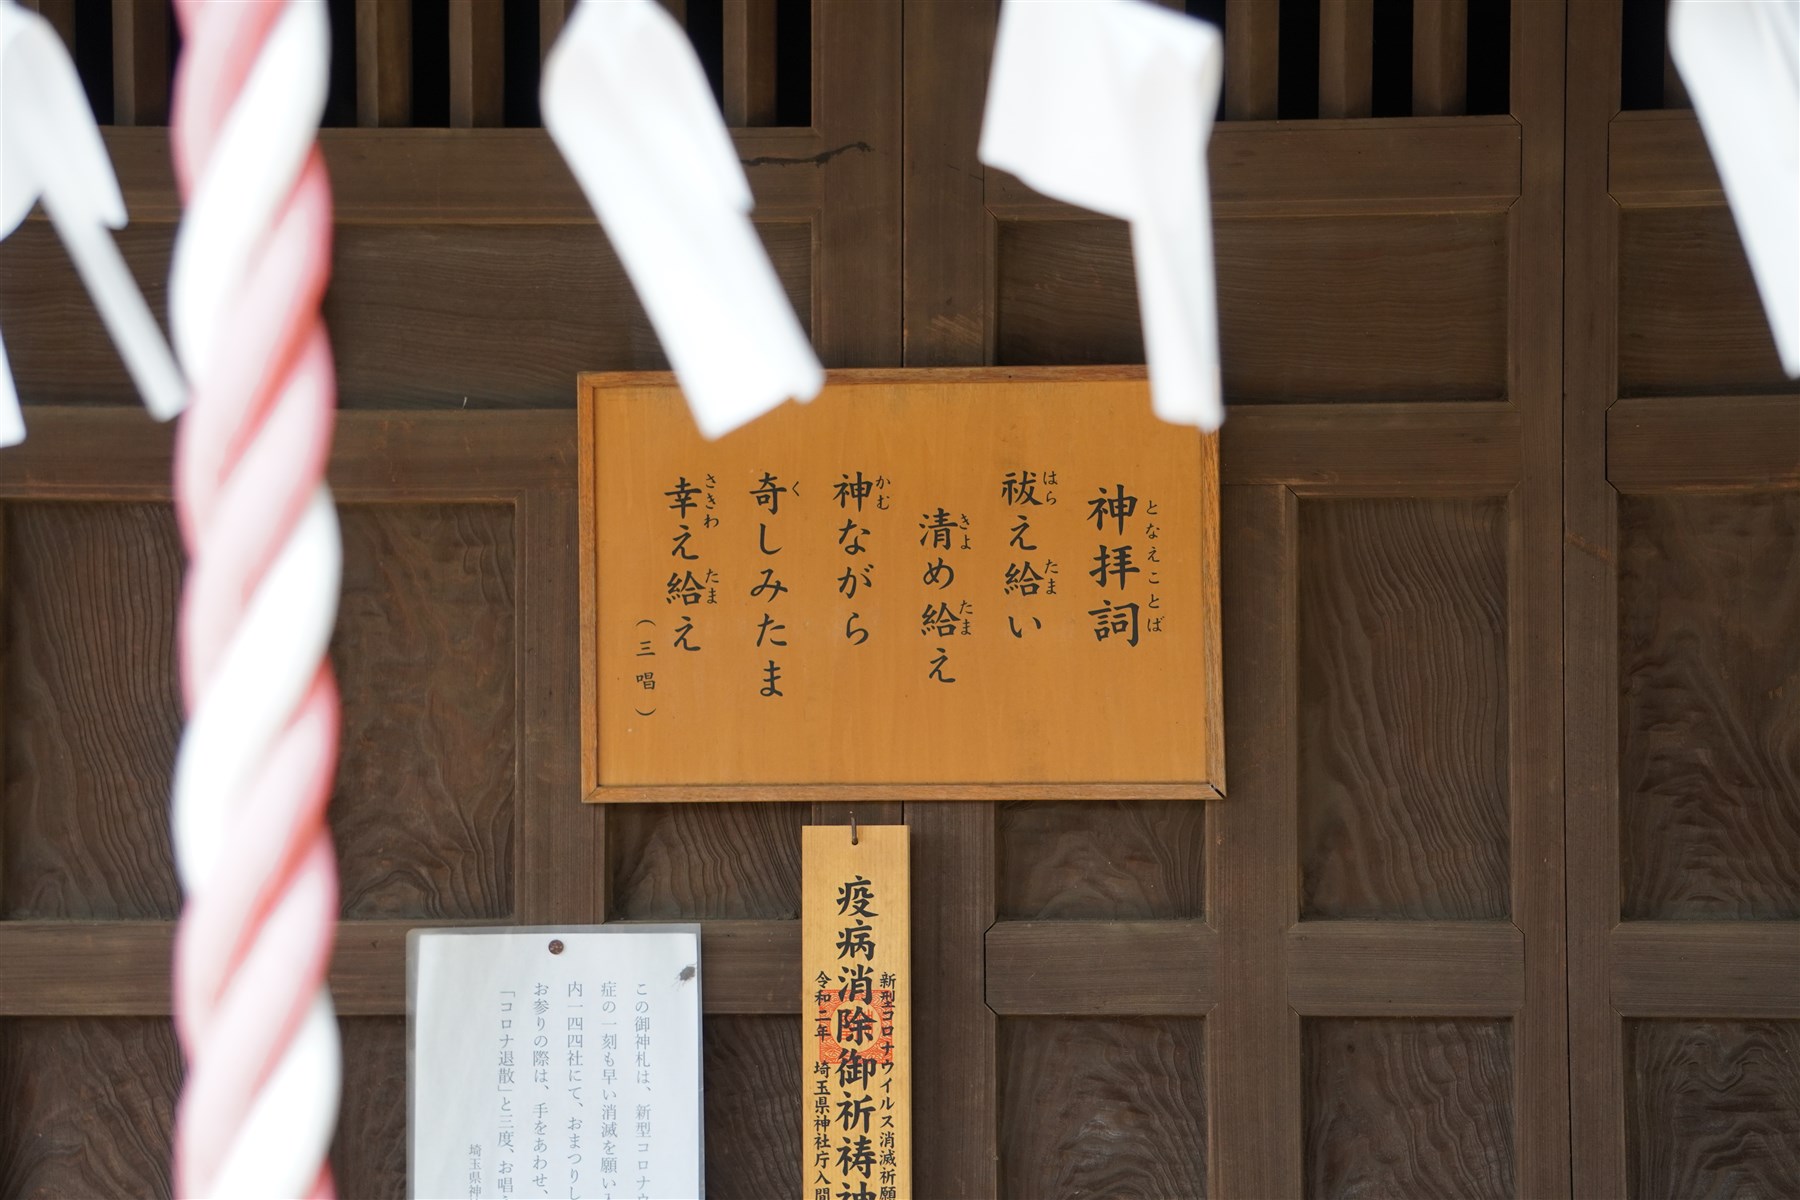 神拝詞
となえことば
祓え給い
はら たま
清め給え
きよ たま
神ながら
かむ
奇しみたま
く
幸え給え
さきわ たま
（三唱）
新型コロナウイルス消滅祈願
疫病消除御祈祷神
令和二年 埼玉県神社庁入間
この御神札は、新型コロナウ
症の一刻も早い消滅を願い入
内一四四社にて、おまつりし
お参りの際は、手をあわせ、
「コロナ退散」と三度、お唱え
埼玉県神